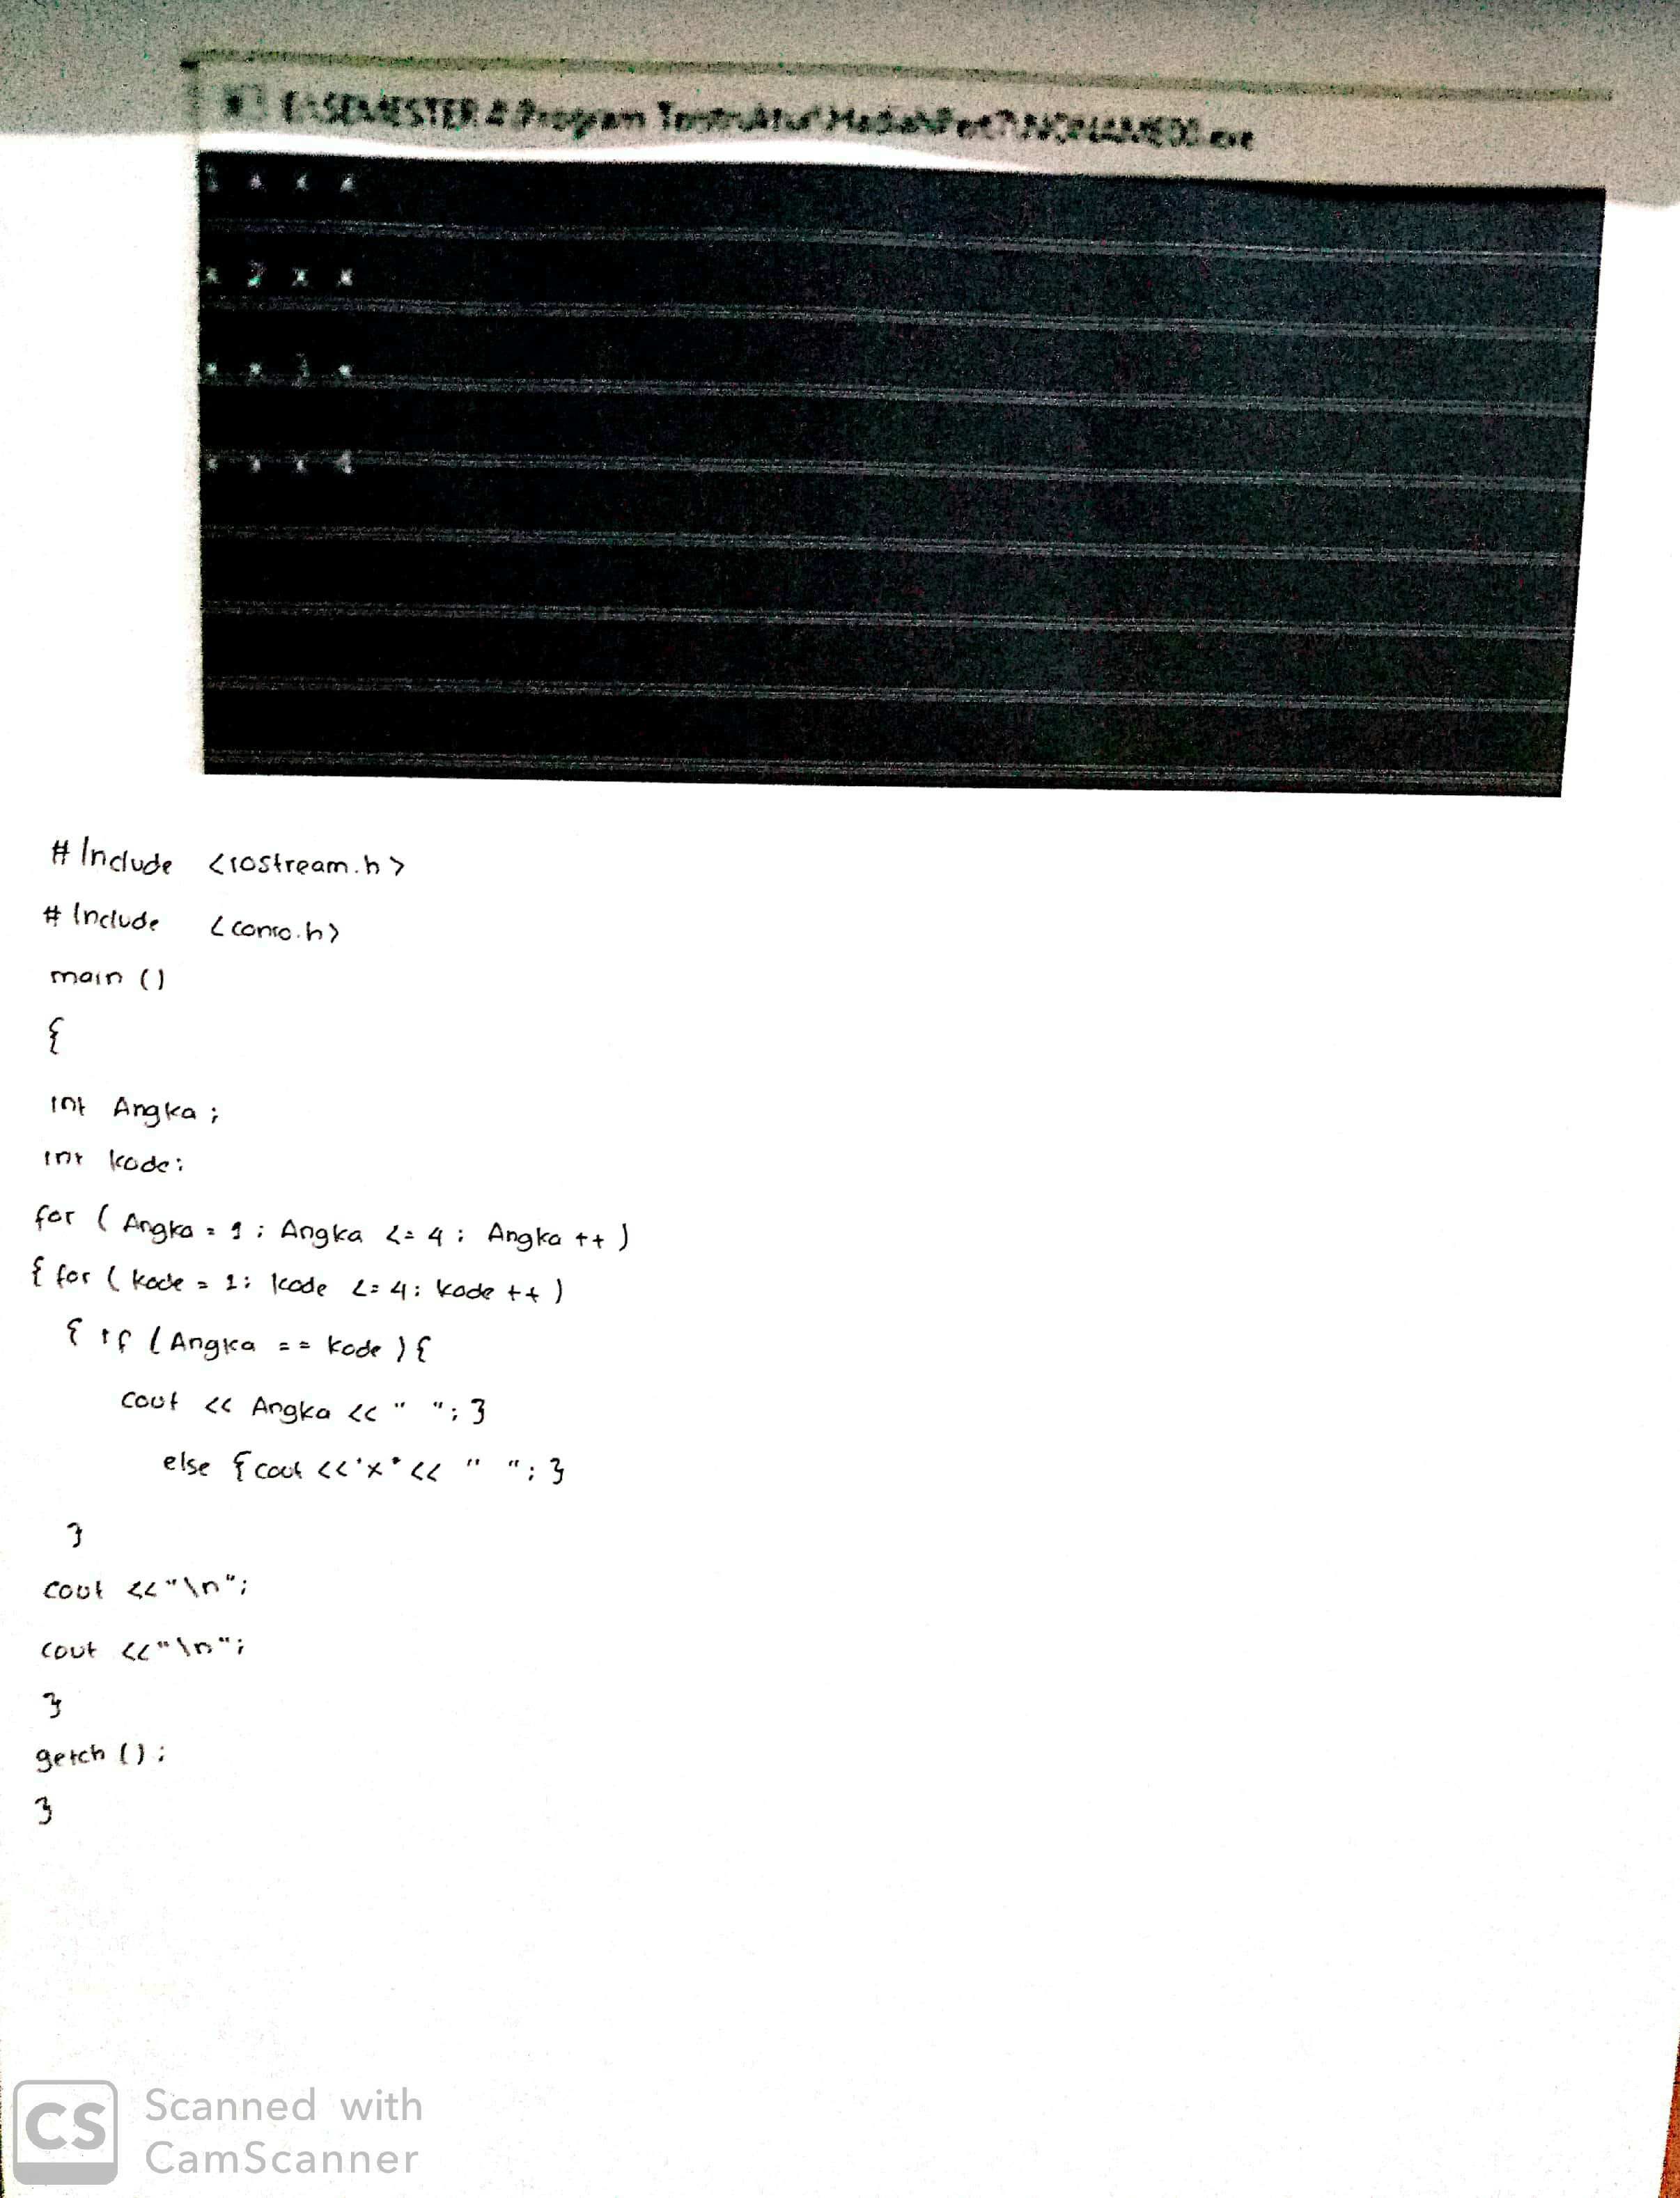 E:\SEMESTER 4\Program Terstruktur\ .exe
1 x x x
x 2 x x
x x 3 x
x x x 4
# Include <iostream.h>
# Include <conio.h>
main ()
{
int Angka ;
int kode ;
for ( Angka = 1 ; Angka <= 4 ; Angka ++ )
{ for ( kode = 1 ; kode <= 4 ; kode ++ )
{ if ( Angka == kode ) {
cout << Angka << " " ; }
else { cout << "x" << " " ; }
}
cout << "\n" ;
cout << "\n" ;
}
getch () ;
}
CS Scanned with
CamScanner